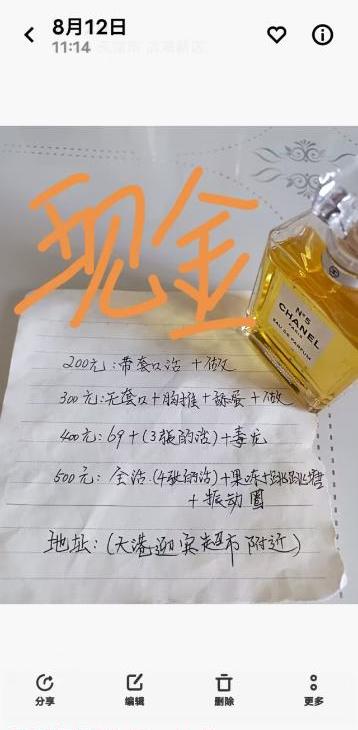 8月12日
11:14
现金
N°5
CHANEL
PARIS
EAU DE PARFUM
200元:带套口活 +做
300元:无套口+胸推+舔蛋+做
400元:69+(3张的活)+毒龙
500元: 全活.(4张的活)+果冻+跳跳糖
+振动圈
地址:(大港迎宾超市附近)
分享
编辑
删除
更多